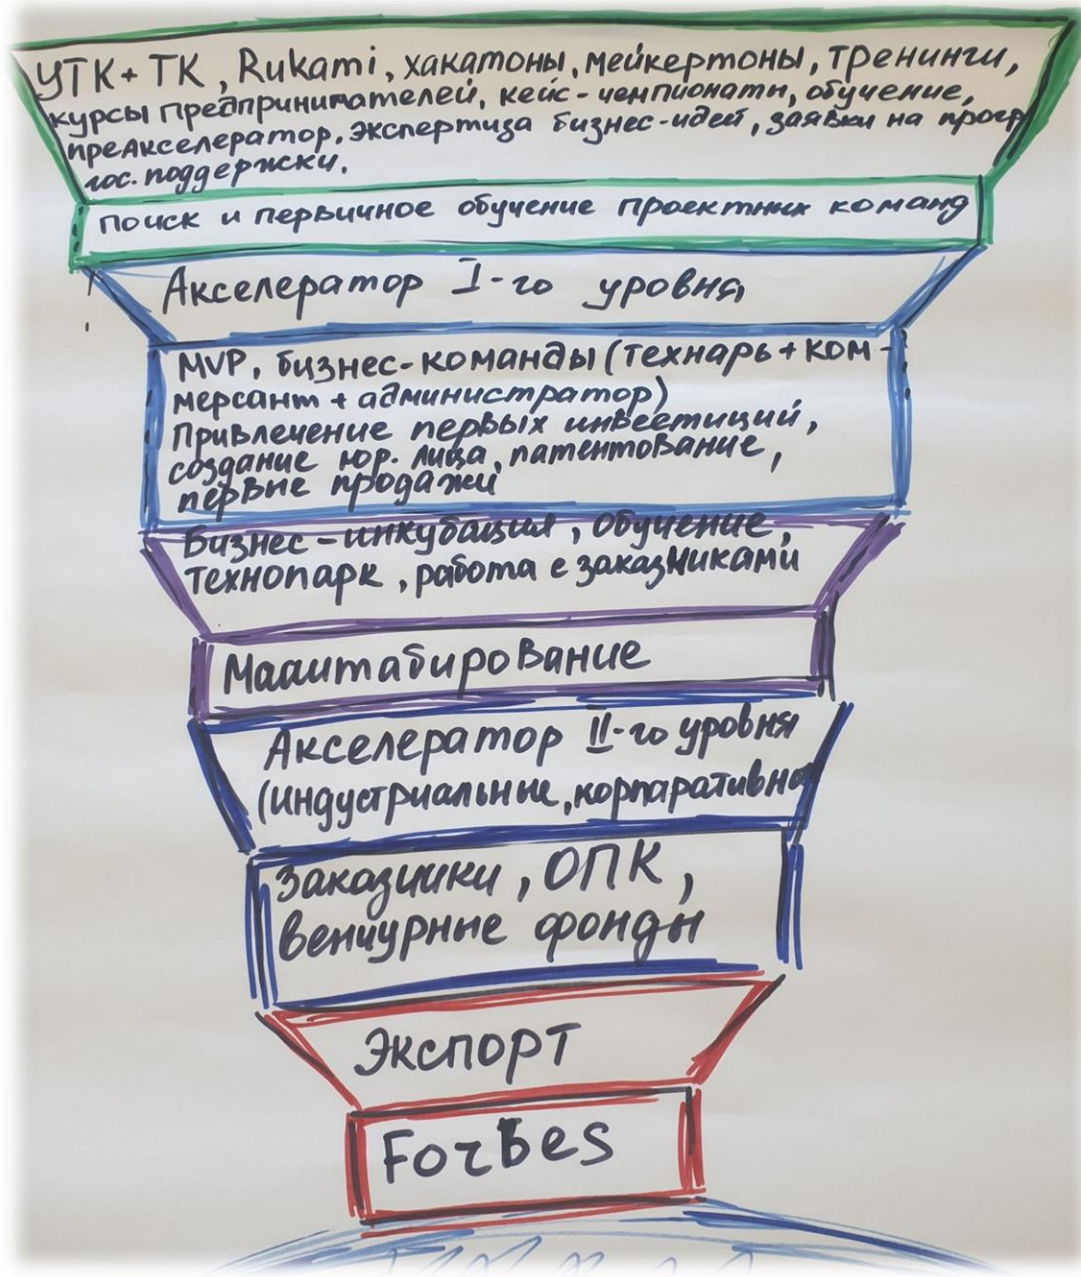 УТК+ ТК, Rukami, хакатоны, мейкертоны, тренинги,
курсы предпринимателей, кейс-чемпионаты, обучение,
преакселератор, экспертиза бизнес-идей, заявки на прогр
гос. поддержки.
поиск и первичное обучение проектных команд
Акселератор I-го уровня
MVP, бизнес-команды (технарь + ком-
мерсант + администратор)
Привлечение первых инвестиций,
создание юр. лица, патентование,
первые продажи
Бизнес-инкубация, обучение,
технопарк, работа с заказчиками
Масштабирование
Акселератор II-го уровня
(индустриальные, корпаративно
Заказчики, ОПК,
венчурные фонды
Экспорт
Forbes